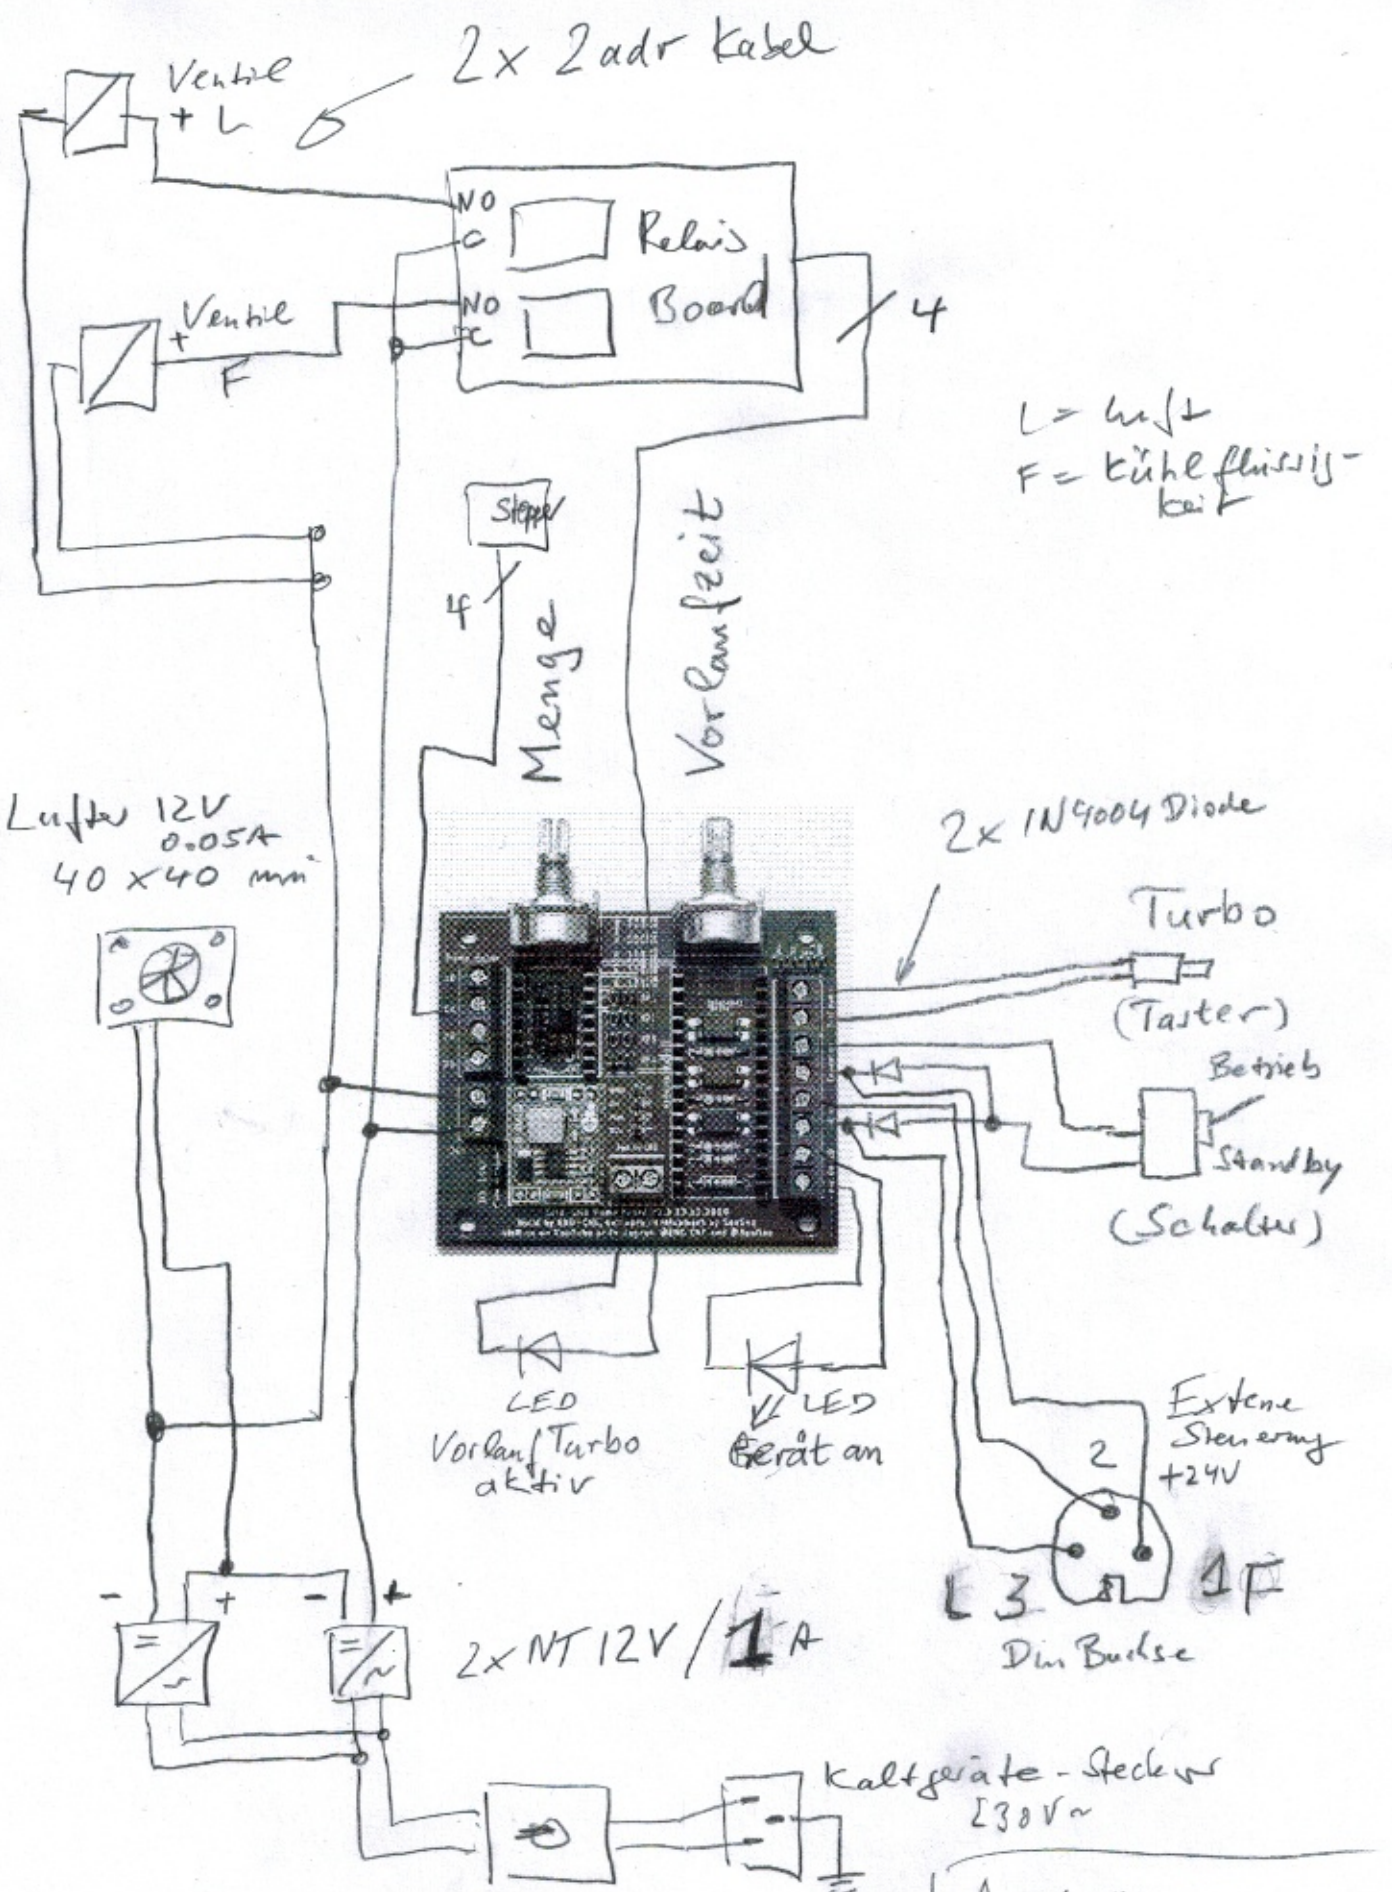 2x 2adr Kabel
Ventil
+ L
-
NO
C
Relais
Board
NO
C
4
+ Ventil
F
L = Luft
F = Kühlflüssig-
keit
Stepper
4
Menge
Vorlaufzeit
Lüfter 12V
0.05A
40 x 40 mm
2x 1N4004 Diode
Turbo
(Taster)
Betrieb
Standby
(Schalter)
LED
Vorlauf Turbo
aktiv
LED
Gerät an
Externe
Steuerung
+24V
2
L 3
1 F
Din Buchse
- + - +
2x NT 12V / 1 A
Kaltgeräte-Stecker
230V~